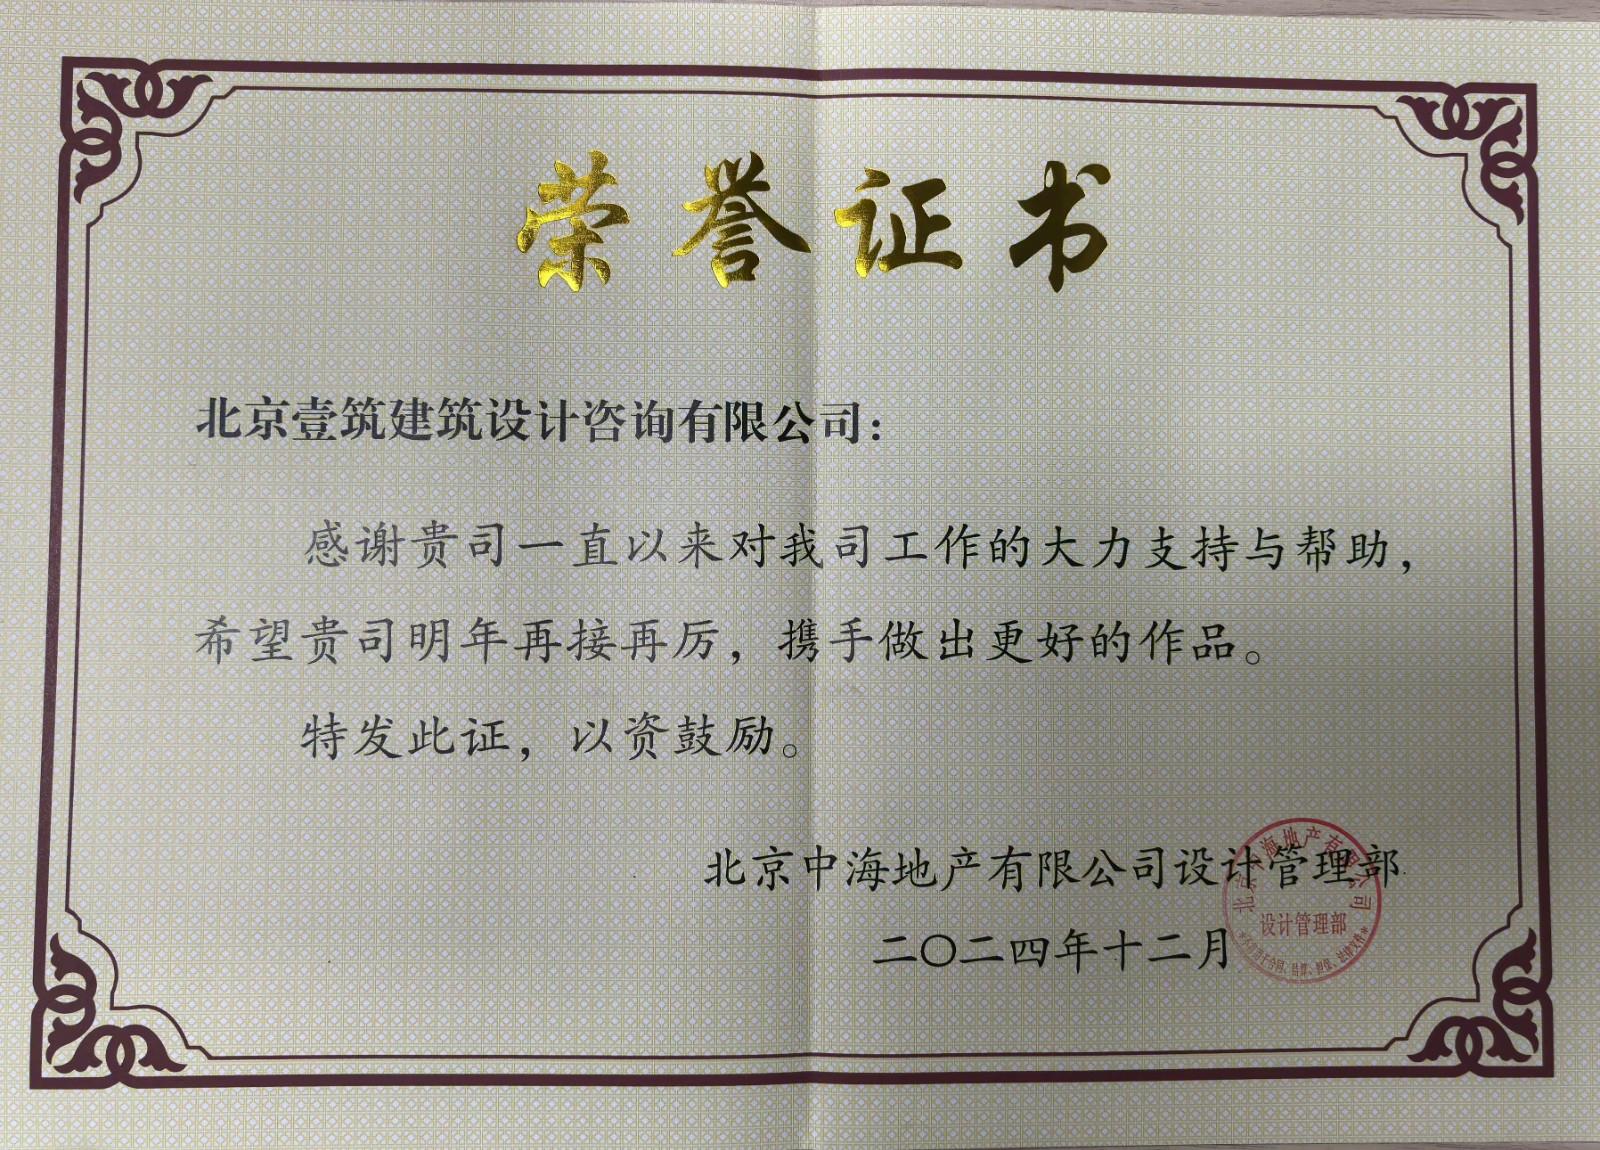 荣誉证书
北京壹筑建筑设计咨询有限公司：
感谢贵司一直以来对我司工作的大力支持与帮助，
希望贵司明年再接再厉，携手做出更好的作品。
特发此证，以资鼓励。
北京中海地产有限公司设计管理部
二〇二四年十二月
北京中海地产有限公司
设计管理部